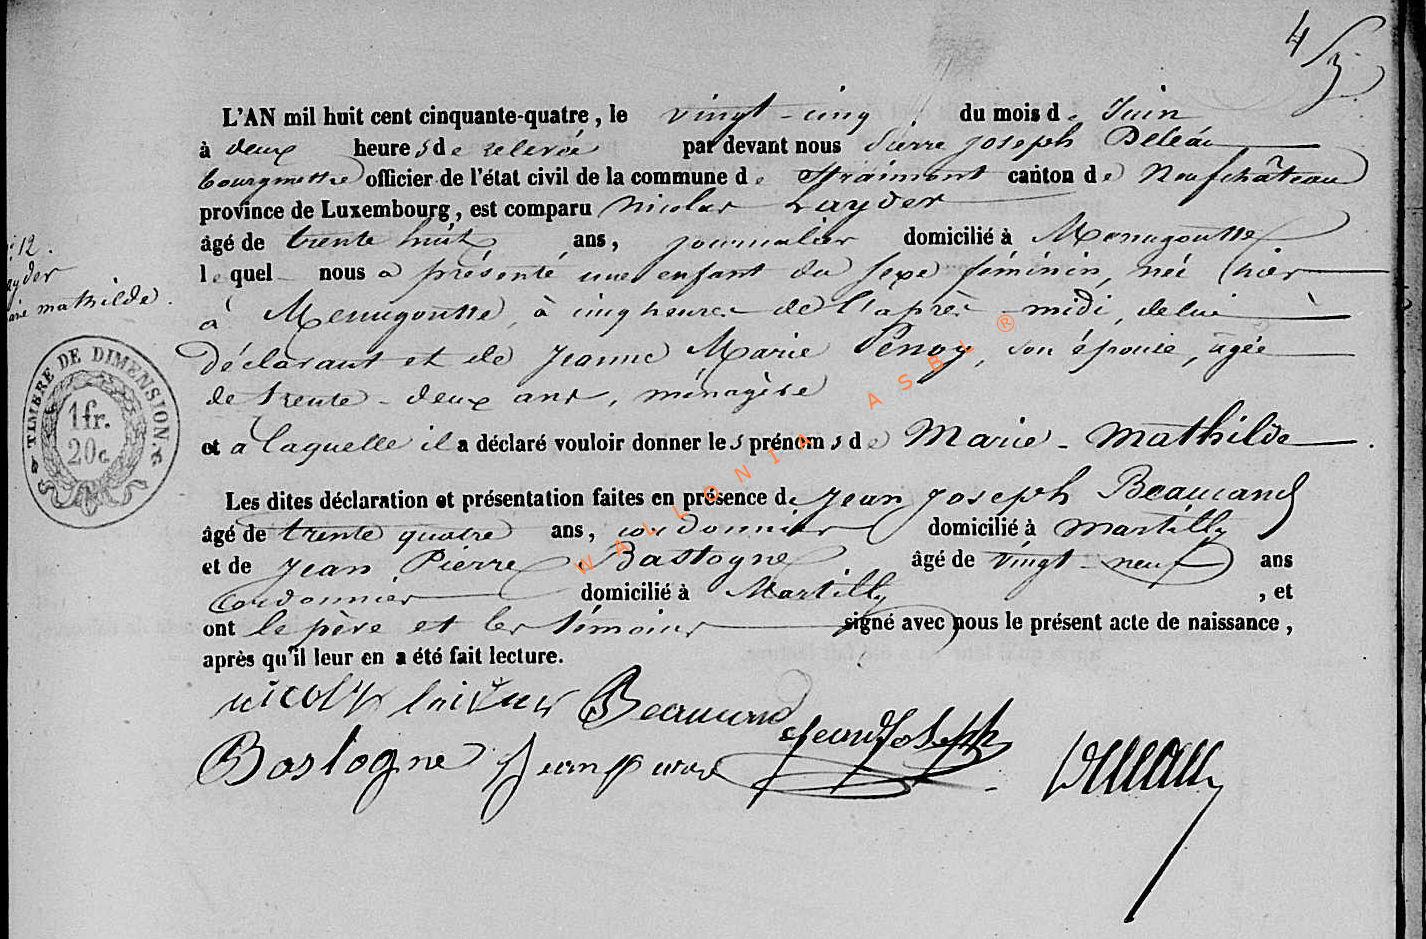 4
L'AN mil huit cent cinquante-quatre, le vingt-cinq du mois de Juin
à deux heures de relevée par devant nous Pierre Joseph Deleau
bourgmestre officier de l'état civil de la commune de Straimont canton de Neufchâteau
province de Luxembourg, est comparu Nicolas Layder
âgé de trente huit ans, journalier domicilié à Menugoutte
lequel nous a présenté une enfant du sexe féminin, née hier
à Menugoutte, à cinq heures de l'après-midi, de lui
déclarant et de Jeanne Marie Penoy, son épouse, âgée
de trente-deux ans, ménagère
et à laquelle il a déclaré vouloir donner les prénoms de Marie-Mathilde
Les dites déclaration et présentation faites en présence de Jean Joseph Beaucand
âgé de trente quatre ans, cordonnier domicilié à Martilly
et de Jean Pierre Bastogne âgé de vingt-neuf ans
Cordonnier domicilié à Martilly, et
ont le père et les témoins signé avec nous le présent acte de naissance,
après qu'il leur en a été fait lecture.
Bastogne Jean
12.
yder
mathilde.
TIMBRE DE DIMENSION.
1 fr.
20 c
WALLONIA ASBL ®